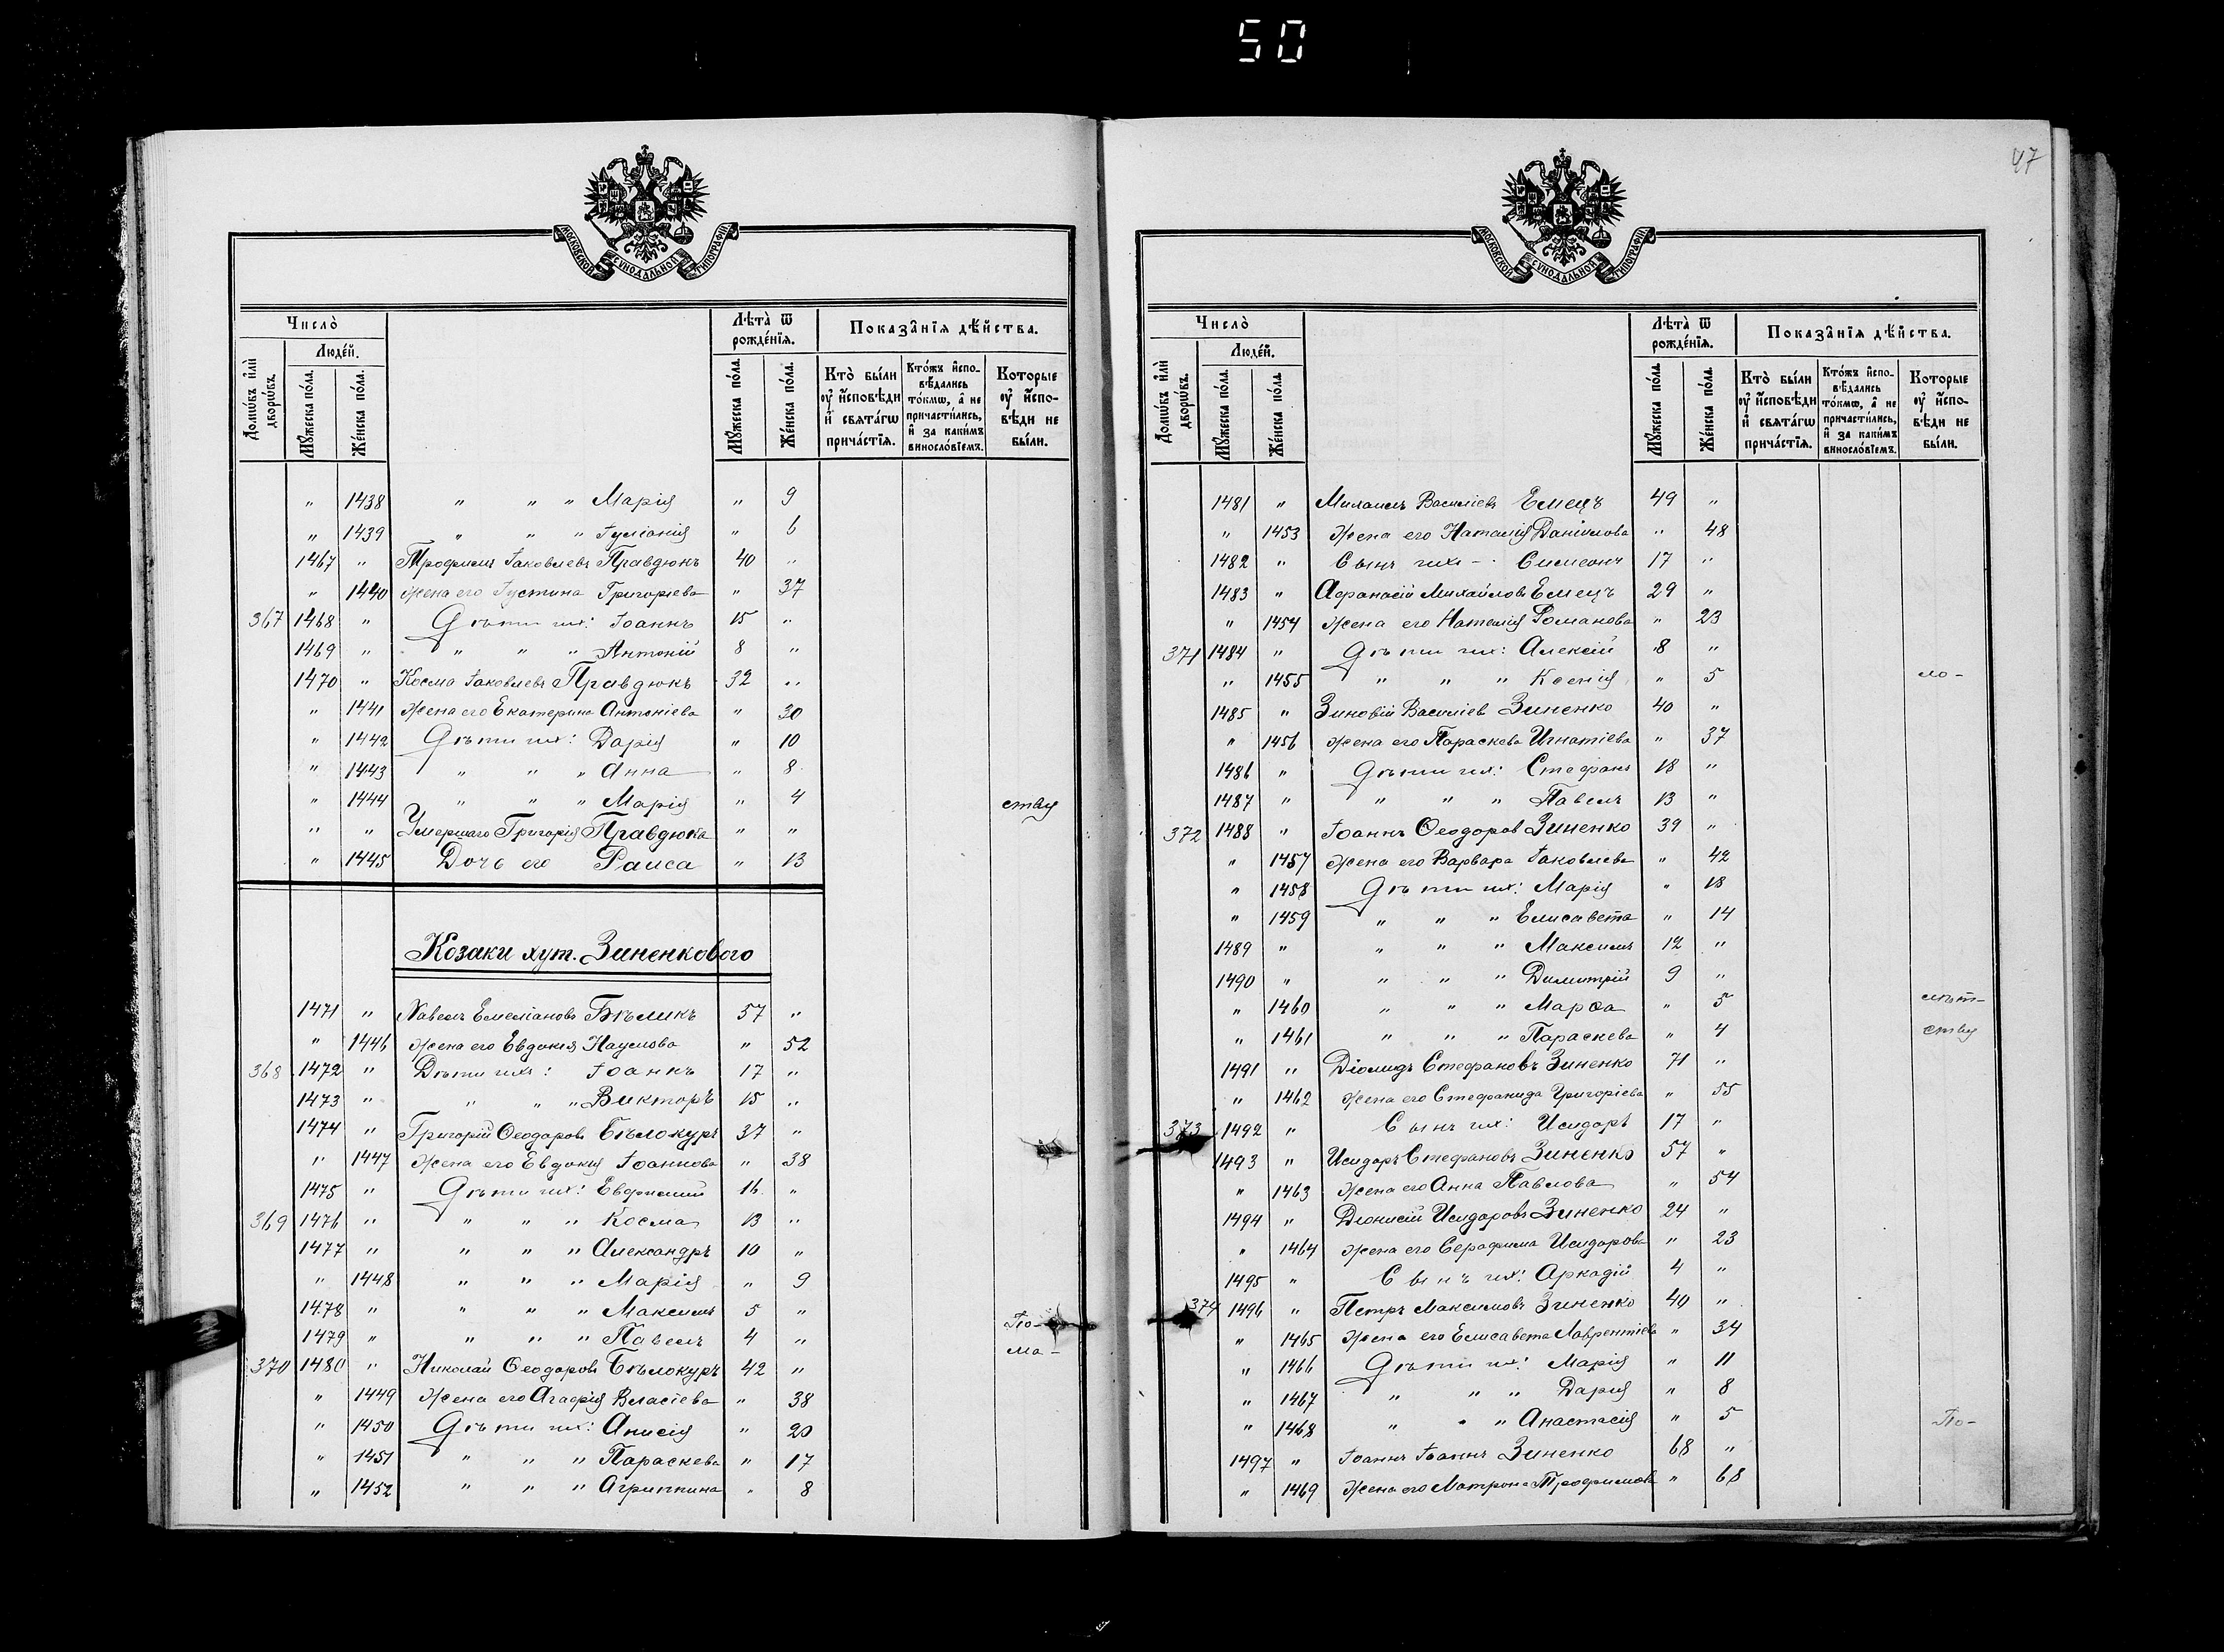 50
МОСКОВСКОЙ СѴНОДАЛЬНОЙ ТИПОГРАФІИ
Число̀
Домѡ́въ и҆лѝ дворѡ́въ.
Люде́й.
Мꙋ́жеска по́ла.
Же́нска по́ла.
Лѣта̀ ѿ рожде́нїѧ.
Мꙋ́жеска по́ла.
Же́нска по́ла.
Показа̑нїѧ дѣ́йства.
Кто̀ бы́ли ᲂу҆ и҆сповѣди и҆ свѧта́гѡ прича́стїѧ.
Кто́жъ и҆сповѣдались то́кмѡ, а҆ не причасти́лись, и҆ за каки́мъ виносло́вїемъ.
Которые ᲂу҆ и҆сповѣди не бы́ли.
" 1438 " " " Марія " 9
" 1439 " " " Іуліанія " 6
1467 " Трофимъ Іаковлевъ Правдюкъ 40 "
" 1440 Жена его Іустина Григоріева " 37
367 1468 " Дѣти ихъ: Іоаннъ 15 "
1469 " " " " Антоній 8 "
1470 " Косма Іаковлевъ Правдюкъ 32 "
" 1441 Жена его Екатерина Антоніева " 30
" 1442 Дѣти ихъ: Дарія " 10
" 1443 " " " Анна " 8
" 1444 " " " Марія " 4 ству
" " Умершаго Григорія Правдюка " "
" 1445 Дочь его Раиса " 13
Козаки хут. Зиненкового
1471 " Павелъ Емеліановъ Бѣликъ 57 "
" 1446 Жена его Евдокия Наумова " 52
368 1472 " Дѣти ихъ: Іоаннъ 17 "
1473 " " " " Викторъ 15 "
1474 " Григорій Ѳеодоровъ Бѣлокуръ 37 "
" 1447 Жена его Евдокия Іоаннова " 38
1475 " Дѣти ихъ: Евфимий 16 "
369 1476 " " " " Косма 13 "
1477 " " " " Александръ 10 "
" 1448 " " " Марія " 9
1478 " " " " Максимъ 5 " По-
1479 " " " " Павелъ 4 " ма-
370 1480 " Николай Ѳеодоровъ Бѣлокуръ 42 "
" 1449 Жена его Агафія Власіева " 38
" 1450 Дѣти ихъ: Анисія " 20
" 1451 " " " Параскева " 17
" 1452 " " " Агриппина " 8
47
МОСКОВСКОЙ СѴНОДАЛЬНОЙ ТИПОГРАФІИ
Число̀
Домѡ́въ и҆лѝ дворѡ́въ.
Люде́й.
Мꙋ́жеска по́ла.
Же́нска по́ла.
Лѣта̀ ѿ рожде́нїѧ.
Мꙋ́жеска по́ла.
Же́нска по́ла.
Показа̑нїѧ дѣ́йства.
Кто̀ бы́ли ᲂу҆ и҆сповѣди и҆ свѧта́гѡ прича́стїѧ.
Кто́жъ и҆сповѣдались то́кмѡ, а҆ не причасти́лись, и҆ за каки́мъ виносло́вїемъ.
Которые ᲂу҆ и҆сповѣди не бы́ли.
1481 " Михаилъ Василіевъ Емецъ 49 "
" 1453 Жена его Наталія Даніилова " 48
1482 " Сынъ ихъ - Симеонъ 17 "
1483 " Афанасій Михайловъ Емецъ 29 "
" 1454 Жена его Наталія Романова " 23
371 1484 " Дѣти ихъ: Алексій 8 "
" 1455 " " " Ксенія " 5 ло-
1485 " Зиновій Василіев Зиненко 40 "
" 1456 Жена его Параскева Игнатіева " 37
1486 " Дѣти ихъ: Стефанъ 18 "
1487 " " " " Павелъ 13 "
372 1488 " Іоаннъ Ѳеодоров Зиненко 39 "
" 1457 Жена его Варвара Іаковлева " 42
" 1458 Дѣти ихъ: Марія " 18
" 1459 " " " Елисавета " 14
1489 " " " " Максимъ 12 "
1490 " " " " Димитрій 9 "
" 1460 " " " Марѳа " 5 лѣт-
" 1461 " " " Параскева " 4 ству
1491 " Діомидъ Стефановъ Зиненко 71 "
" 1462 Жена его Стефанида Григоріева " 55
373 1492 " Сынъ ихъ: Исидоръ 17 "
1493 " Исидоръ Стефановъ Зиненко 57 "
" 1463 Жена его Анна Павлова " 54
1494 " Діонисій Исидоровъ Зиненко 24 "
" 1464 Жена его Серафима Исидорова " 23
1495 " Сынъ ихъ: Аркадій 4 "
374 1496 " Петръ Максимовъ Зиненко 40 "
" 1465 Жена его Елисавета Лаврентіева " 34
" 1466 Дѣти ихъ: Марія " 11
" 1467 " " " Дарія " 8
" 1468 " " " Анастасія " 5 По-
1497 " Іоаннъ Іоаннъ Зиненко 68 "
" 1469 Жена его Матрона Трофимова " 68